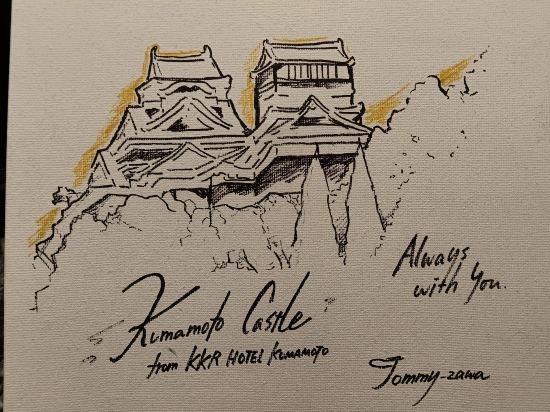 Kumamoto Castle
from KKR HOTEL KUMAMOTO
Always
with You.
Tommy-zawa